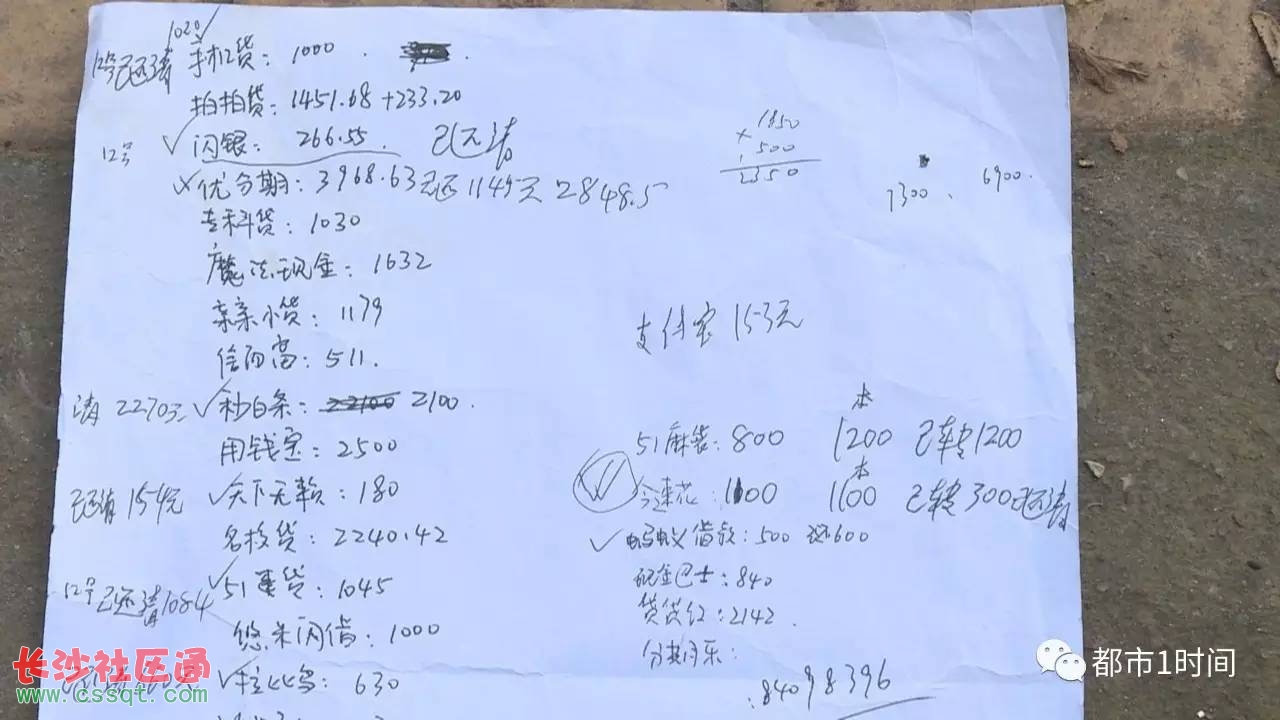 1020
12号已还清 手机贷：1000
拍拍贷：1451.68+233.20
12号 闪银：266.55 已还清
1850
× 500
2350
7300、6900.
优分期：3968.63已还1145元 2848.5
专科贷：1030
魔法现金：1632
亲亲小贷：1179
信而富：511.
支付宝153元
清 2270元 秒白条：22100 2100.
用钱宝：2500
已还清154元 天下无赖：180
名校贷：2240.42
12号已还清1084 51惠贷：1045
悠米闪借：1000
拉比鸟：630
本
51麻袋：800 1200 已转1200
本
今速花：1100 1100 已转300还清
蚂蚁借款：500 还600
现金巴士：840
贷贷红：2142
分期乐：
8409 8396
长沙社区通
www.cssqt.com
都市1时间